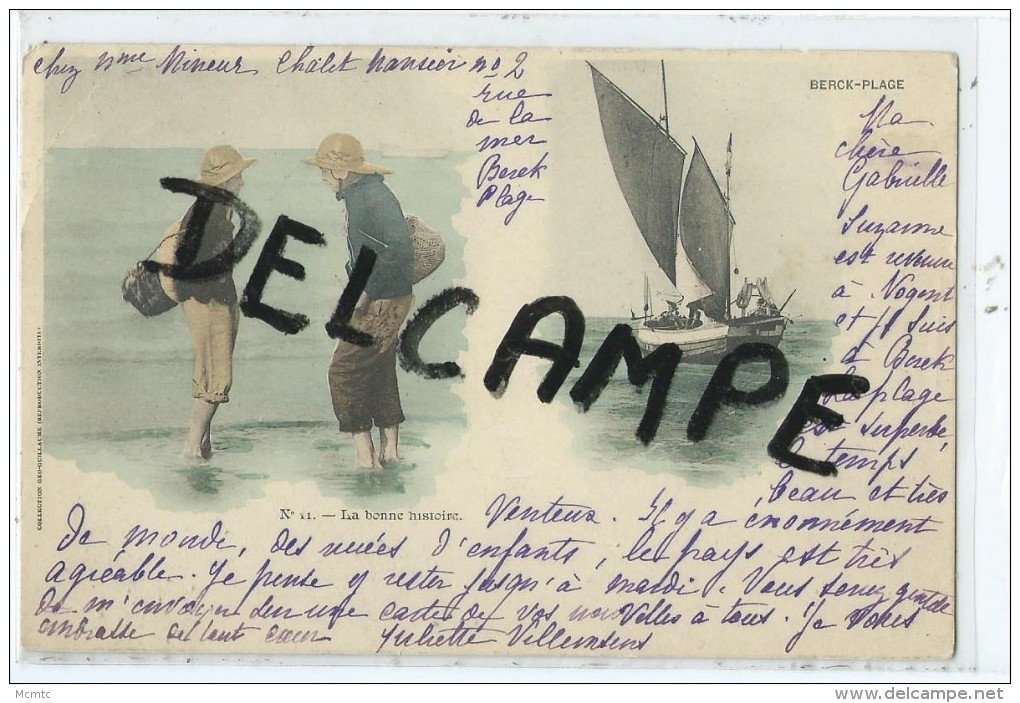 chez Mme Mineur Châlet Nansier no 2
rue
de la
mer
Berck
Plage
BERCK-PLAGE
Ma
chère
Gabrielle
Suzanne
est revenue
à Nogent
et je suis
à Berck
la plage
est superbe,
le temps
beau et très
venteux. Il y a énormément
de monde, des nuées d'enfants, le pays est très
agréable. Je pense y rester jusqu'à mardi. Vous serez gentille
de m'envoyer sur une carte de vos nouvelles à tous. Je vous
embrasse de tout cœur Juliette Villemsens
DELCAMPE
No 11. — La bonne histoire.
COLLECTION GEO-GUILLAUME (REPRODUCTION INTERDITE)
Mcmtc
www.delcampe.net